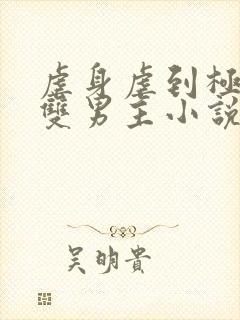 虐身虐到極
雙男主小說
吴明貴